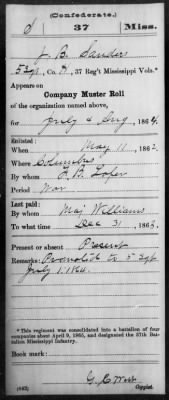 (Confederate.)
S 37 Miss.
J. B. Sanders
5 Sgt, Co. A, 37 Reg't Mississippi Vols.*
Appears on
Company Muster Roll
of the organization named above,
for July & Aug, 1864.
Enlisted:
When May 11, 1862.
Where Columbus
By whom L. B.
Period War
Last paid:
By whom Maj Williams
To what time Dec 31, 1863.
Present or absent Present
Remarks: Promoted to 5 Sgt
July 1. 1864.
*This regiment was consolidated into a battalion of four
companies about April 9, 1865, and designated the 37th Battalion Mississippi Infantry.
Book mark:
(642) G. E. West
Copyist.